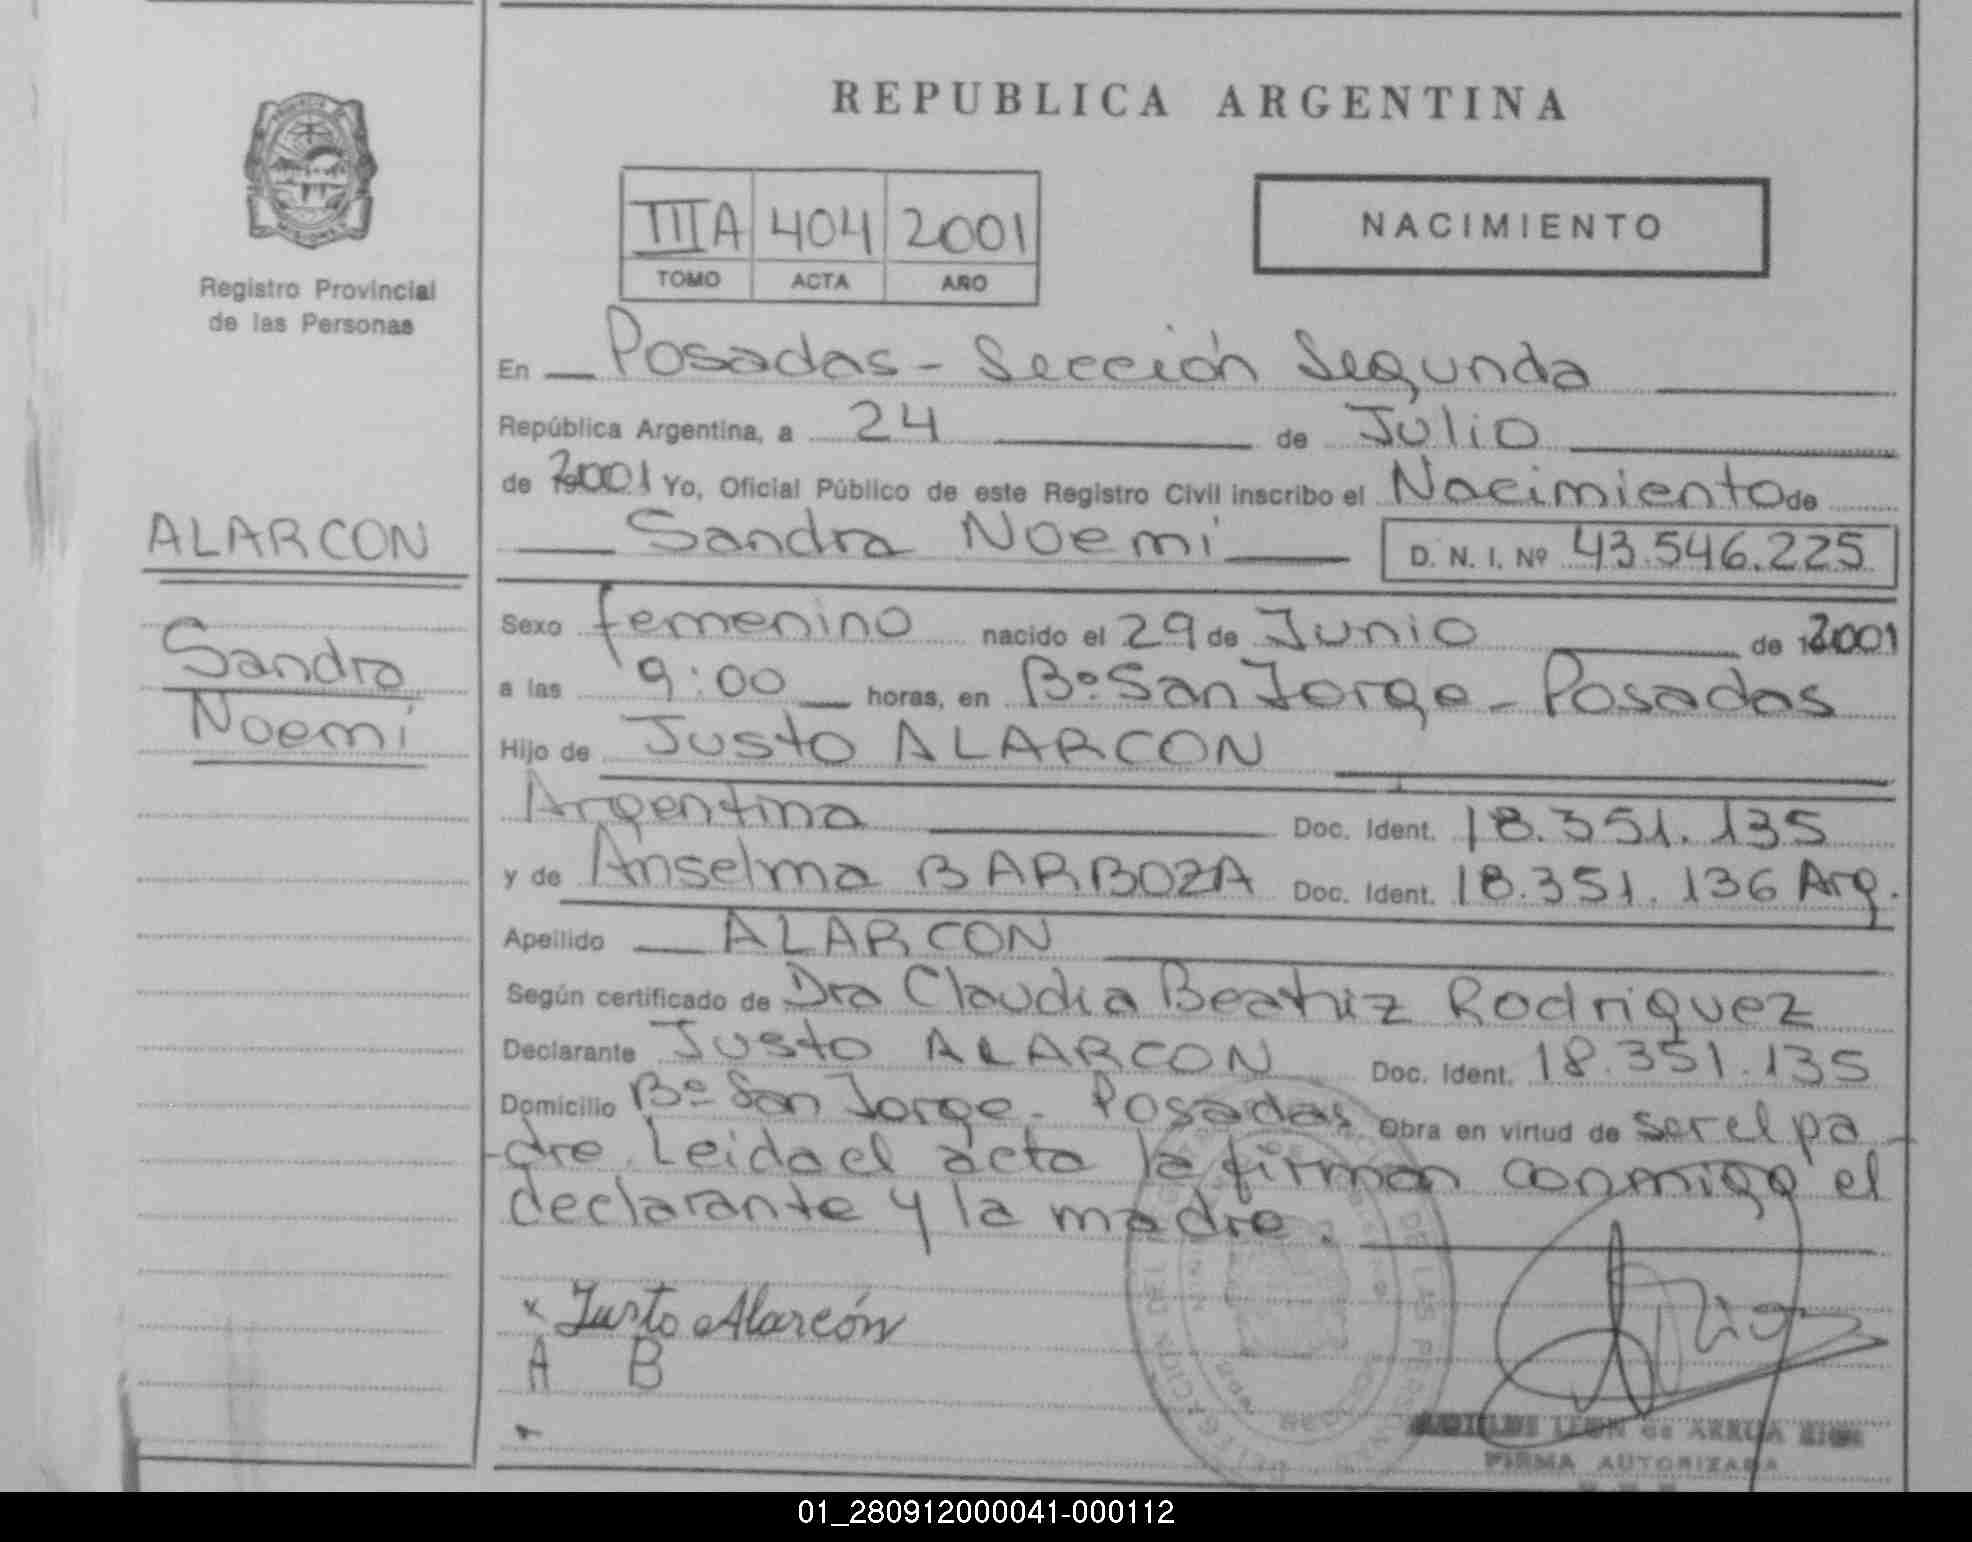 REPUBLICA ARGENTINA
IIIA 404 2001
TOMO ACTA AÑO
NACIMIENTO
Registro Provincial
de las Personas
En Posadas - Sección Segunda
República Argentina, a 24 de Julio
de 2001 Yo, Oficial Público de este Registro Civil inscribo el Nacimiento de
Sandra Noemi D. N. I. Nº 43.546.225
ALARCON
Sandra
Noemi
Sexo femenino nacido el 29 de Junio de 2001
a las 9:00 horas, en Bº San Jorge - Posadas
Hijo de Justo ALARCON
Argentina Doc. Ident. 18.351.135
y de Anselma BARBOZA Doc. Ident. 18.351.136 Arg.
Apellido ALARCON
Según certificado de Dra Claudia Beatriz Rodriguez
Declarante Justo ALARCON Doc. Ident. 18.351.135
Domicilio Bº San Jorge - Posadas Obra en virtud de ser el pa-
dre. Leida el acta la firman conmigo el
declarante y la madre.
x Justo Alarcón
A B
DE LAS PERSONAS
LEON de ARRUA
FIRMA AUTORIZADA
01_280912000041-000112